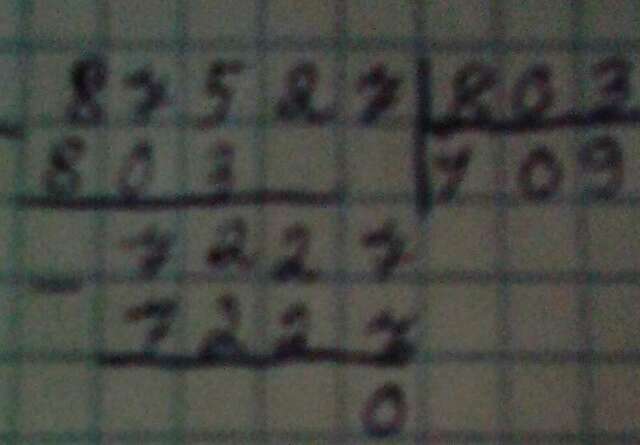 - 87527 | 803
803 | 109
- 7227
7227
0